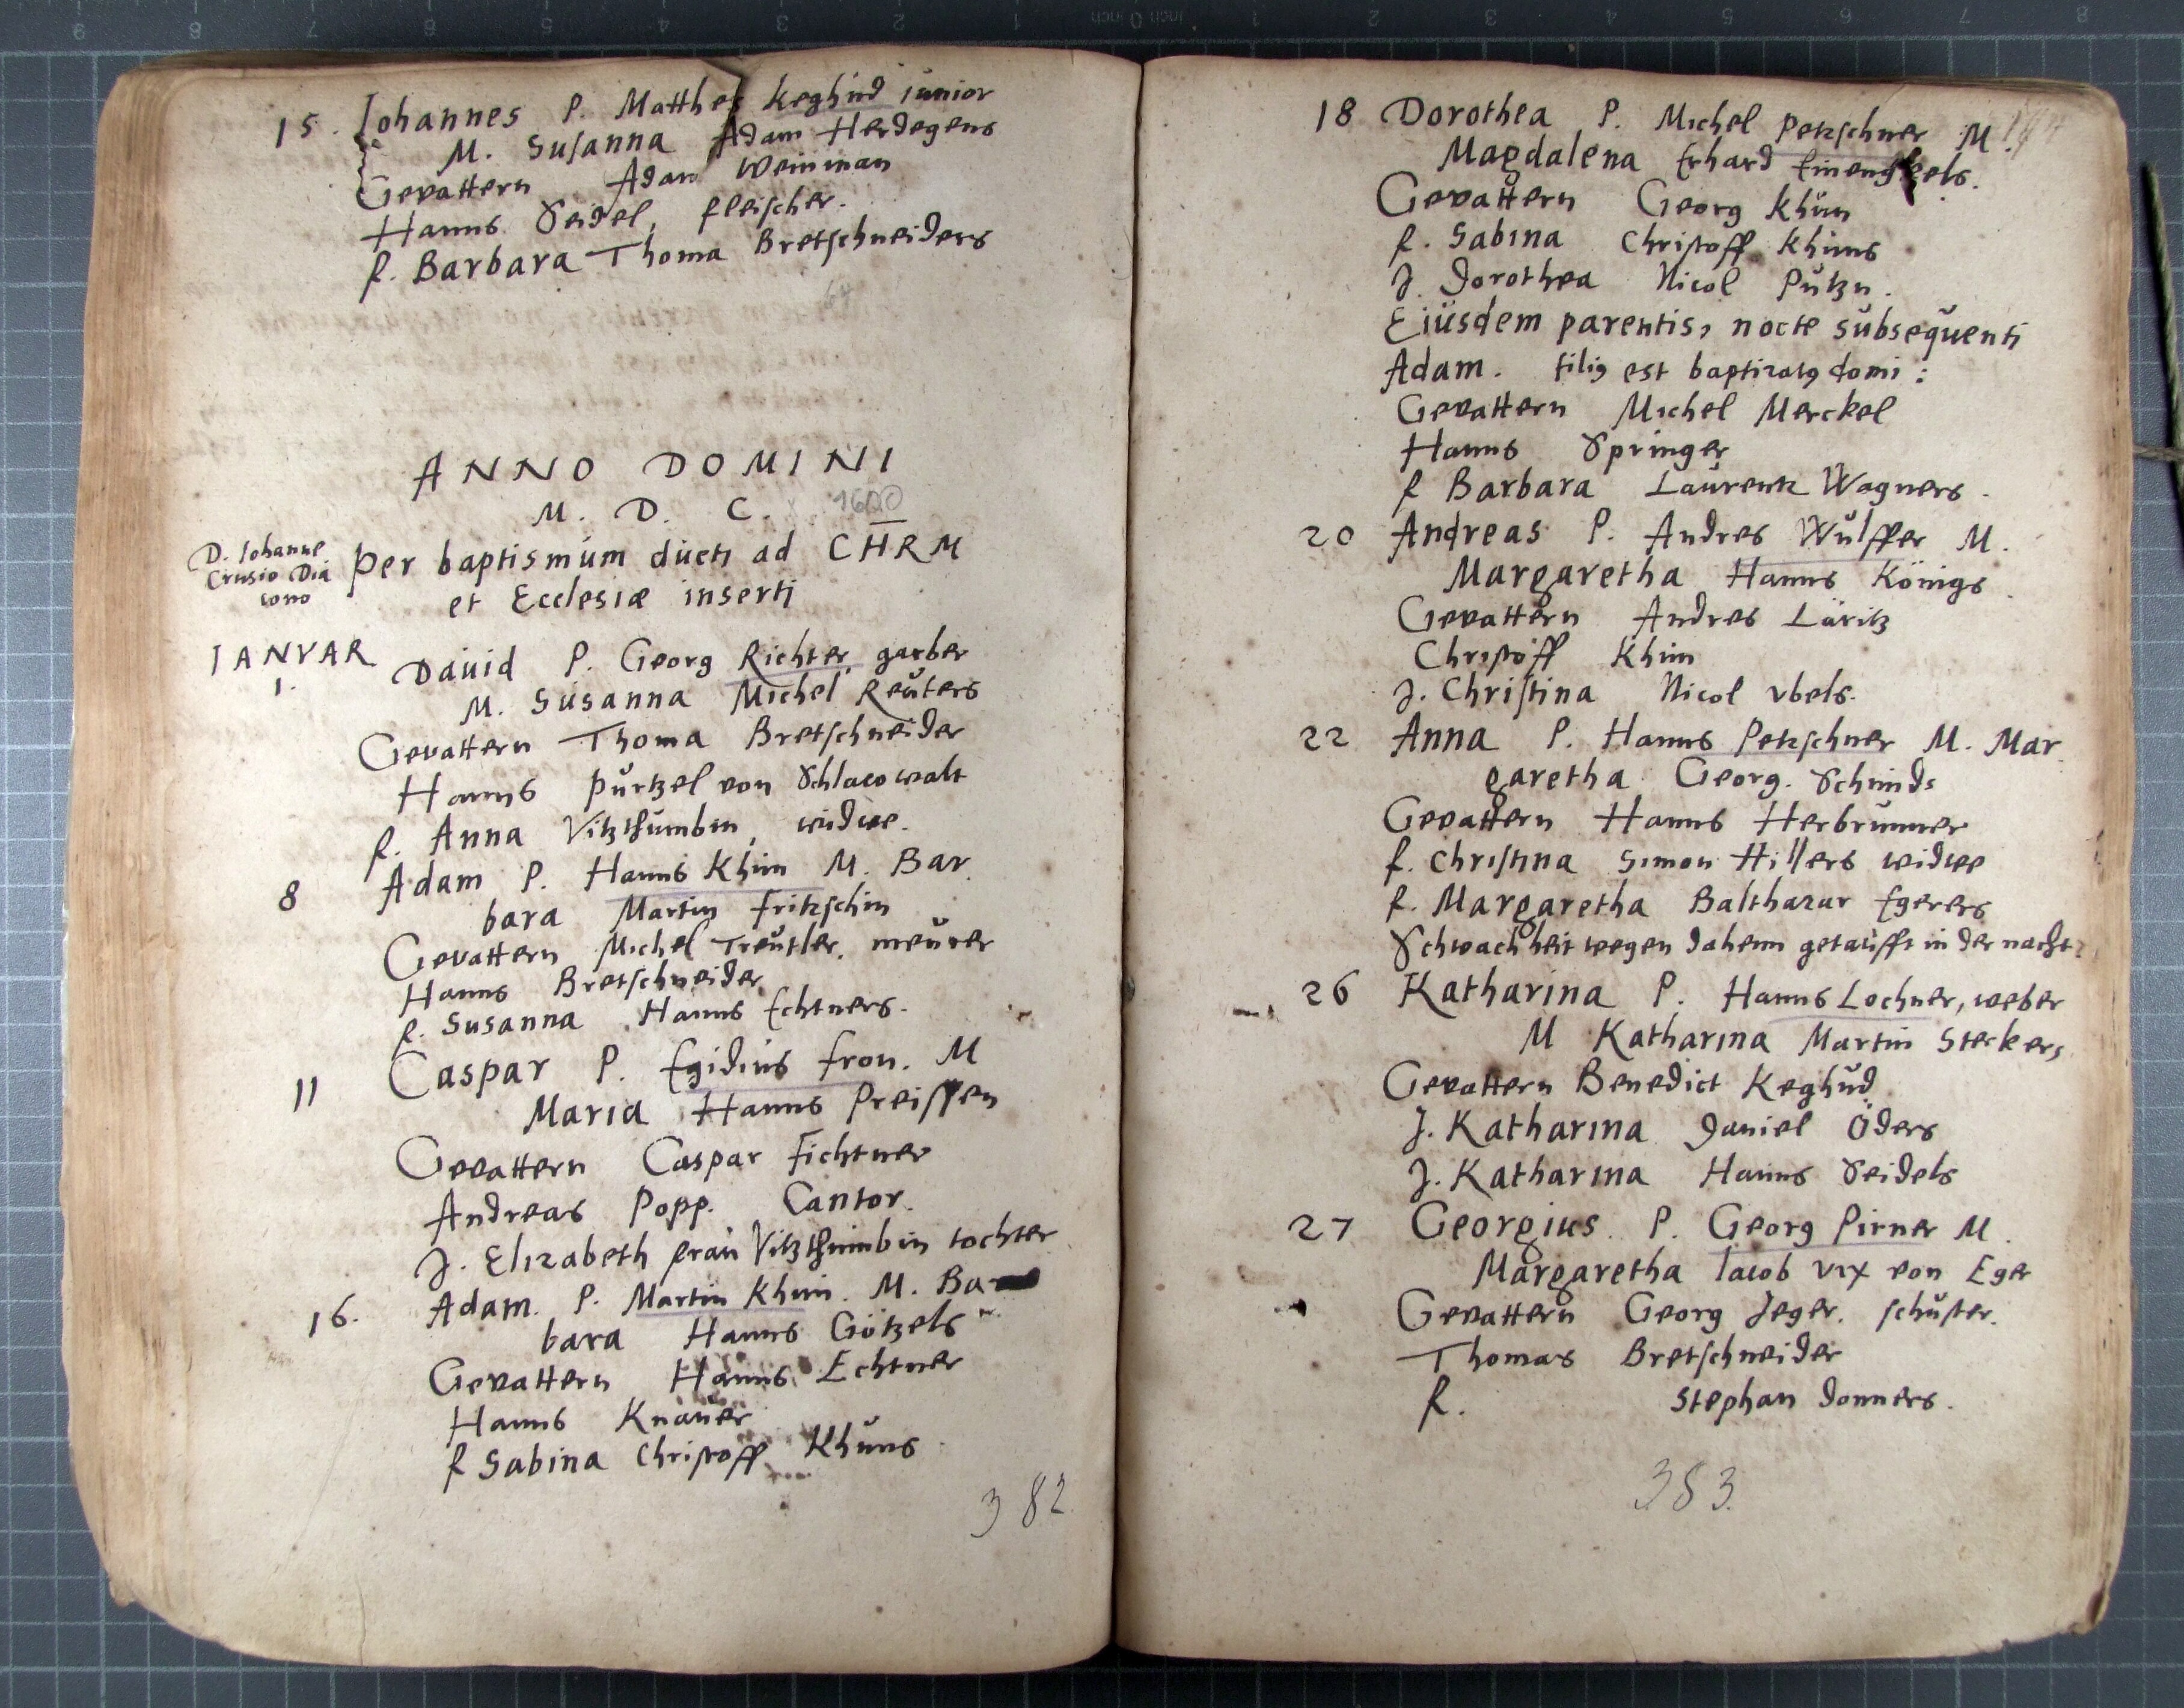 15. Johannes P. Matthes Keghüd iunior
M. Susanna Adam Herdegens
Gevattern Adam Weinman
Hanns Seidel, fleischer.
f. Barbara Thoma Bretschneiders
64
ANNO DOMINI
M. D. C. 1600
D. Iohanne
Crusio Dia
cono
per baptismum ducti ad CHRM
et Ecclesiæ inserti
IANVAR
1. David P. Georg Richter, garber
M. Susanna Michel Reuters
Gevattern Thoma Bretschneider
Hanns Pürtzel von Schlacowalt
f. Anna Vitzthumbin, widwe.
8 Adam P. Hanns Khün M. Bar
bara Martin Fritzschin
Gevattern Michel Treutler. meurer
Hanns Bretschneider
f. Susanna Hanns Echtners.
11 Caspar P. Egidius Fron. M
Maria Hanns Preissen
Gevattern Caspar Fichtner
Andreas Popp. Cantor.
J. Elizabeth frau Vitzthumbin tochter
16. Adam. P. Martin Khün. M. Bar
bara Hanns Götzels
Gevattern Hanns Echtner
Hanns Knauer
f Sabina Christoff Khüns
382
18 Dorothea P. Michel Petzschner M.
Magdalena Erhard
Gevattern Georg Khün
f. Sabina Christoff Khüns
J. Dorothea Nicol Pützn.
Eiusdem parentis, nocte subsequenti
Adam. filius est baptizatus domi:
Gevattern Michel Merckel
Hanns Springer
f Barbara Laurentz Wagners.
20 Andreas P. Andres Wülffer M.
Margaretha Hanns Königs
Gevattern Andres Läritz
Christoff Khün
J. Christina Nicol Vbels.
22 Anna P. Hanns Petzschner M. Mar
garetha Georg. Schmids
Gevattern Hanns Herbrunner
f. Christina Simon Hillers widwe
f. Margaretha Balthazar Egerers
Schwachheit wegen daheim getaufft in der nacht
26 Katharina P. Hanns Lochner, weber
M Katharina Martin Steckers
Gevattern Benedict Keghüd
J. Katharina Daniel Öders
J. Katharina Hanns Seidels
27 Georgius. P. Georg Pirner M.
Margaretha Iacob vix von Eger
Gevattern Georg Jeger. schuster.
Thomas Bretschneider
f. Stephan Donners.
383.